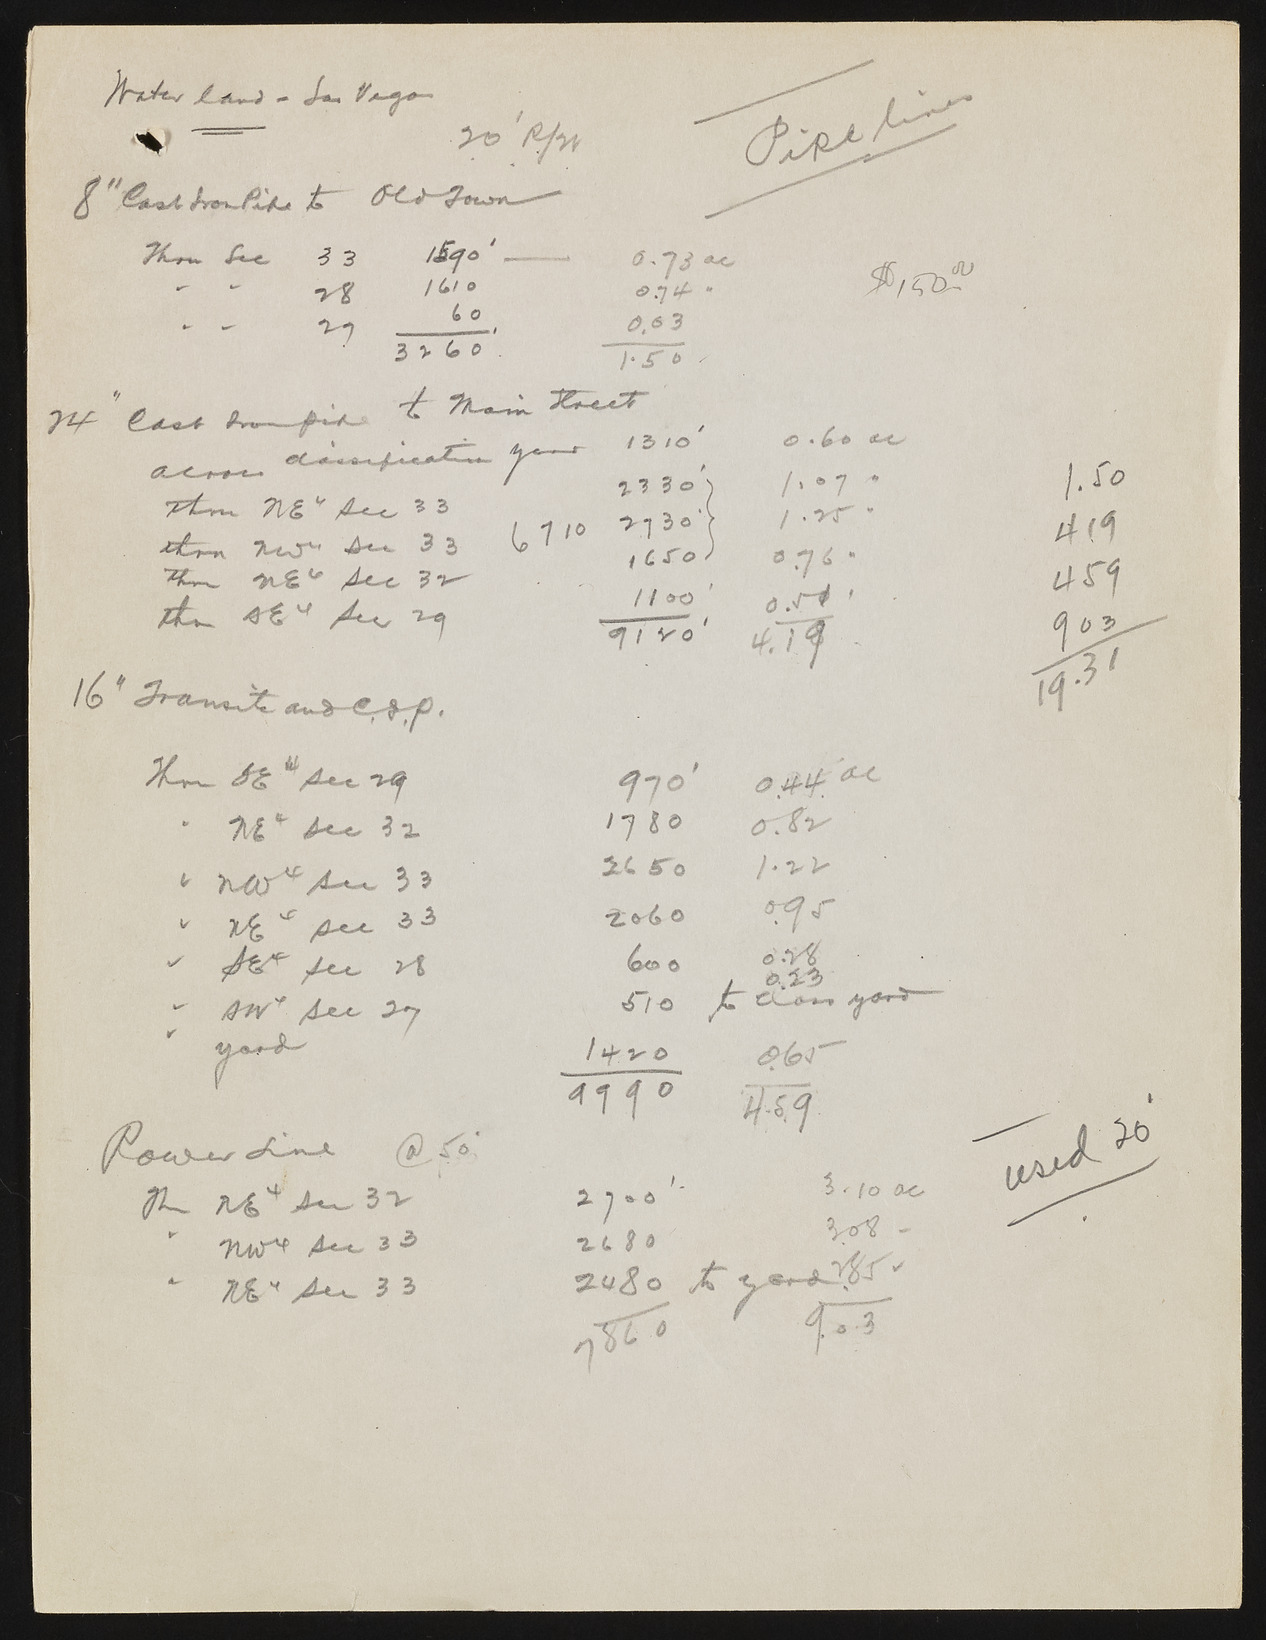 Water land - Las Vegas
Pipe lines
20' R/W
8" Cast Iron Pipe to Old Town
Thru Sec 33 1590' — 0.73 ac
" " 28 1610 0.74 "
$150.00
" " 27 60 0.03
3260' 1.50
24" Cast Iron pipe to Main Street
across classification yard 1310' 0.60 ac
thru NE4 Sec 33 2330' 1.07 "
thru NW4 Sec 33 6710 2730' 1.25 "
thru NE4 Sec 32 1650' 0.76 "
thru SE4 Sec 29 1100' 0.51 '
9120' 4.19
1.50
419
459
903
19.31
16" Transite and C.I.P.
Thru SE4 Sec 29 970' 0.44 ac
" NE4 Sec 32 1780 0.82
" NW4 Sec 33 2650 1.22
" NE4 Sec 33 2060 0.95
" SE4 Sec 28 600 0.28
0.23
" SW4 Sec 27 510 to class yard
" yard 1420 0.65
9990 4.59
Power Line @ 50'
Thru NE4 Sec 32 2700' 3.10 ac
" NW4 Sec 33 2680 3.08 "
" NE4 Sec 33 2480 to yard 2.85 "
7860 9.03
used 20'